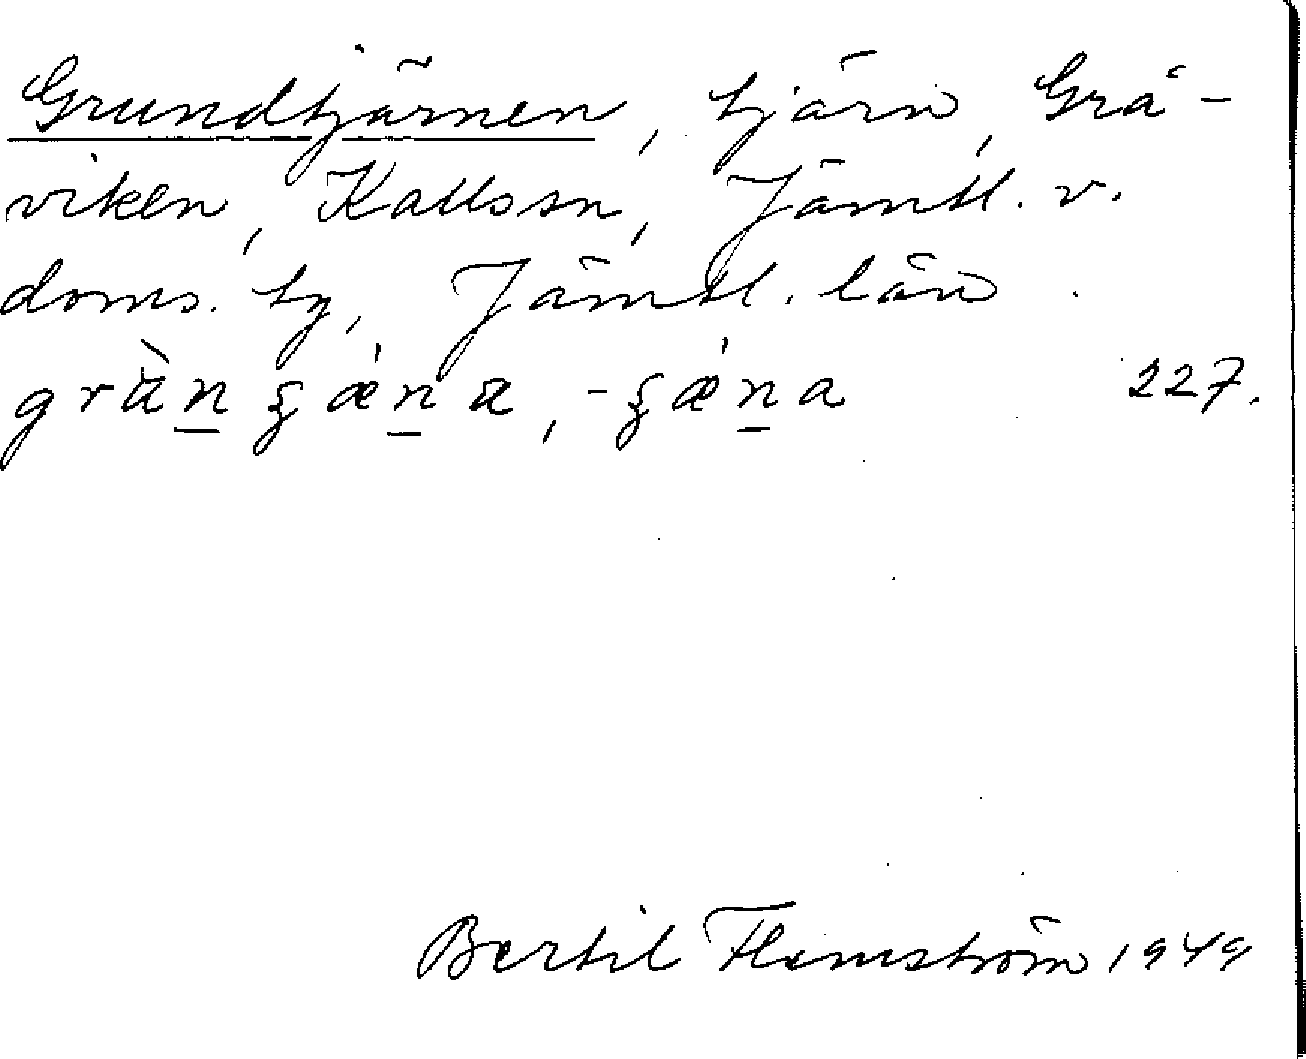 Grundtjärnen, tjärn, Grå-
viken, Kallssn, Jämtl. v.
doms. tg, Jämtl. län.
gràn̲ ʒǽn̲a, -ʒǽn̲a 227.
Bertil Flemström 1949